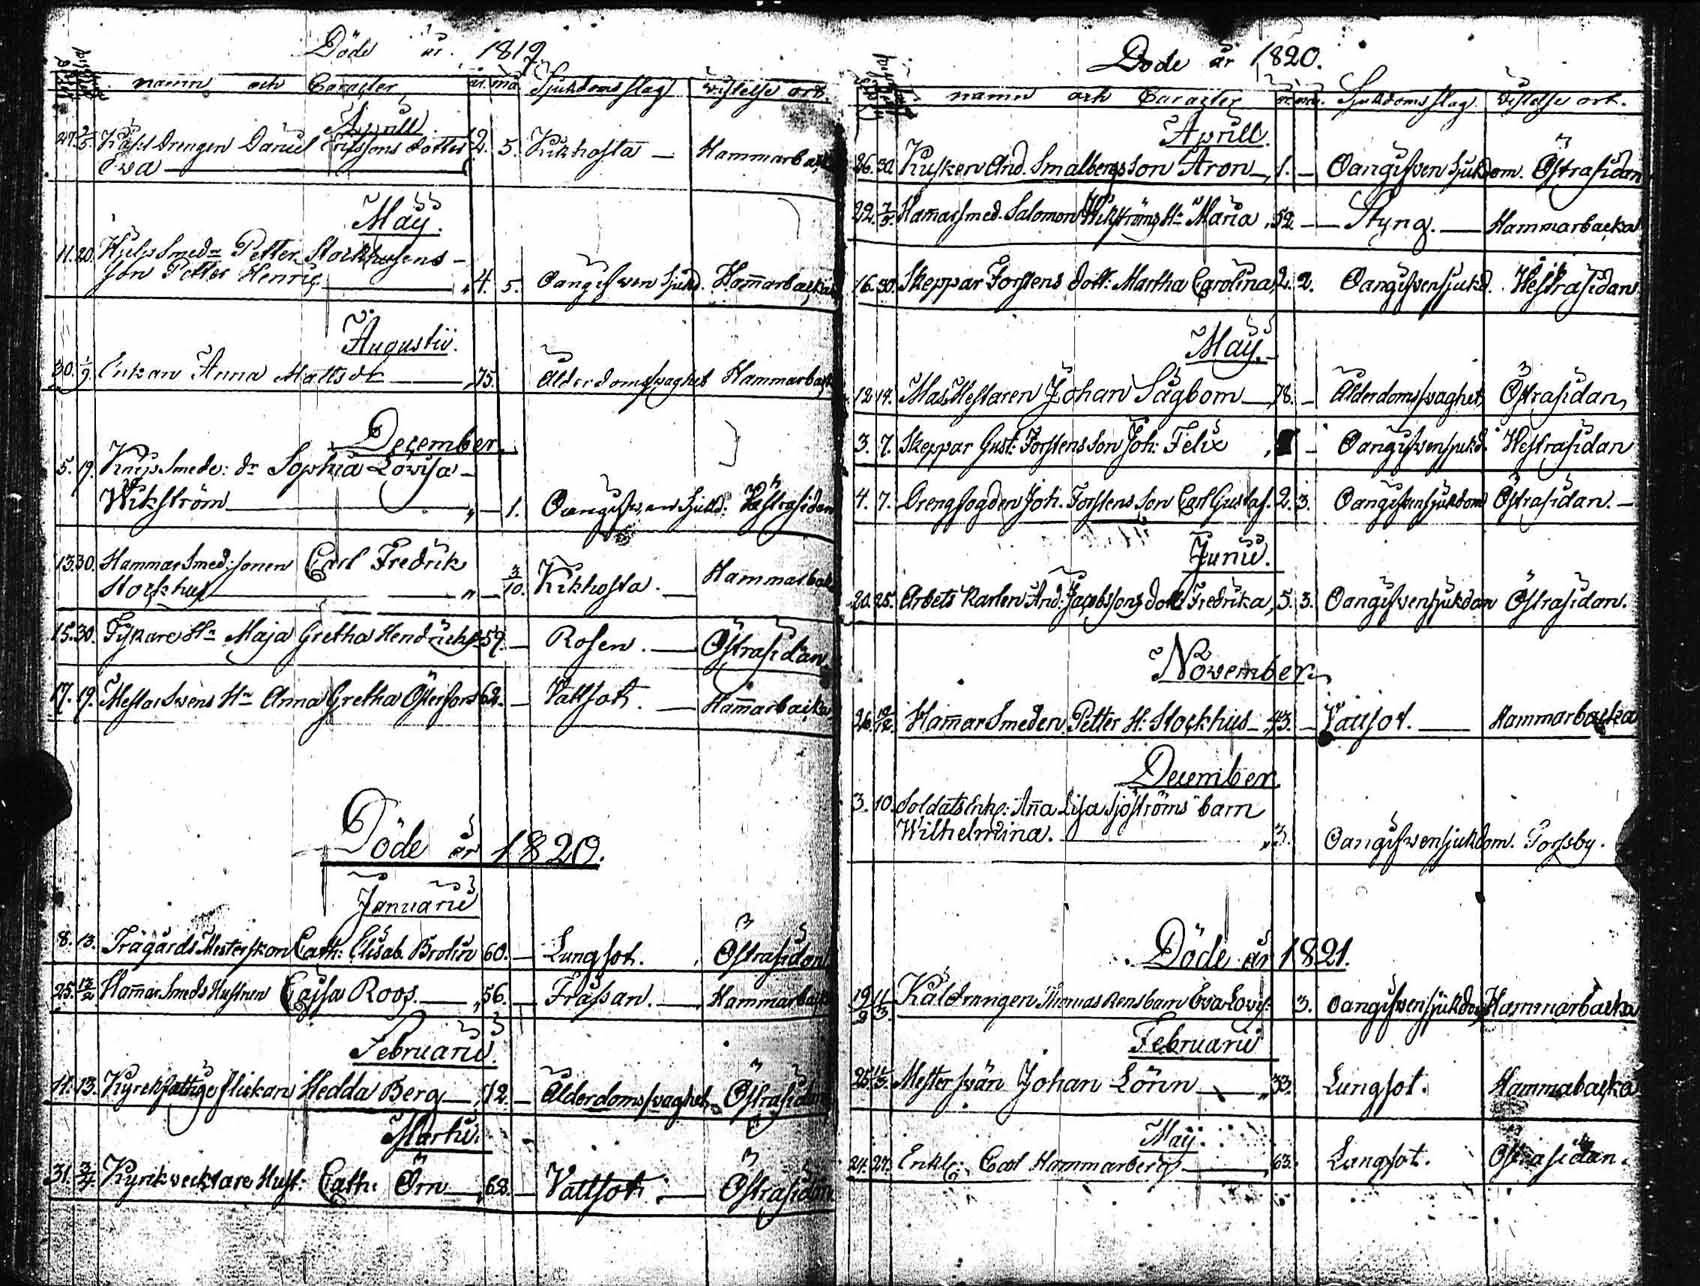 Döde år 1819
namn och Caracter år må Sjukdomsslag vistelse ort.
Aprill
27. 2/5. Drengen Daniel Ericssons dotter 2. 5. Kikhosta — Hammarbacka
Eva
May.
11. 20. Hjelp Smeds Petter Stockhusens
son Petter Henric „ 4. 5. Oangifven Sjukd. Hammarbacka
Augustii.
30. 1/9. Enkan Anna Matts dr 75. Ålderdomssvaghet Hammarbacka
December.
5. 19. Knipsmeds: dr Sophia Lovisa
Wikström „ — 1. Oangifven Sjukd: Westrasidan
13. 30. Hammar Smed: sonen Carl Fredrik
Stockhus „ 3/10. Kikhosta. — Hammarbacka
15. 30. Fiskare Hu Maja Gretha Hendrichs 59. — Rosen. — Östrasidan
17. 19. Mestar Svens Hu Anna Gretha Österfors 62. — Vattsot. — Hammarbacka
Döde år 1820.
Januarii
8. 13. Trägårds Mesterskan Cath: Elisab. Brolin 60. — Lungsot. Östrasidan
25. 12/2 Hamar Smeds Hustrun Cajsa Roos — „ 56. — Frässan. — Hammarbacka
Februarii.
11. 13. Kyrckfattige flickan Hedda Berg — 72. — Ålderdomssvaghet Östrasidan
Martii.
31. 2/4. Kyrckvecktare Hust: Cath: Örn — „ 62. — Vattsot. — Östrasidan
Döde år 1820.
namn och Caracter år må. Sjukdomsslag. vistelse ort.
Aprill.
26. 30. Kusken And. Smalbergs son Aron — „ 1. — Oangifven Sjukdom. Östrasidan
22. 7/5. Hamarsmed. Salomon Wikströms Hu Maria „ 52. — Styng. — Hammarbacka
16. 30. Skeppar Forssens dott: Martha Carolina 2. 2. Oangifvensjukd. Westrasidan
May.
12. 14. MasMestaren Johan Sågbom — 78. — Ålderdomssvaghet Östrasidan
3. 7. Skeppar Gust: Forssens son Joh: Felix „ — Oangifvensjukd. Westrasidan
4. 7. Drengfogden Joh. Forssens son Carl Gustaf. 2. 3. Oangifvensjukdom Östrasidan. —
Junii.
20. 25. Arbets Karlen And: Jacobssons dott Fredrika 5. 3. Oangifvensjukdom Östrasidan.
November
26. 12/12. Hamar Smeden Petter H: Stockhus — „ 43. — Vattsot. — Hammarbacka
December
3. 10. Soldats Enke: Anna Lisa Sjöströms barn
Wilhelmina. „ 3. Oangifvensjukdom. Forssby.
Döde år 1821.
19/2 11/3. Kåldrängen Thomas Rens barn Eva Lovis: 3. Oangifvensjukdom Hammarbacka
Februarii
25. 11/3. Mestersvän Johan Lönn — „ 33. Lungsot. Hammabacka
May.
24. 27. Enkl: Carl Hammarberg — 63. Lungsot. Östrasidan.